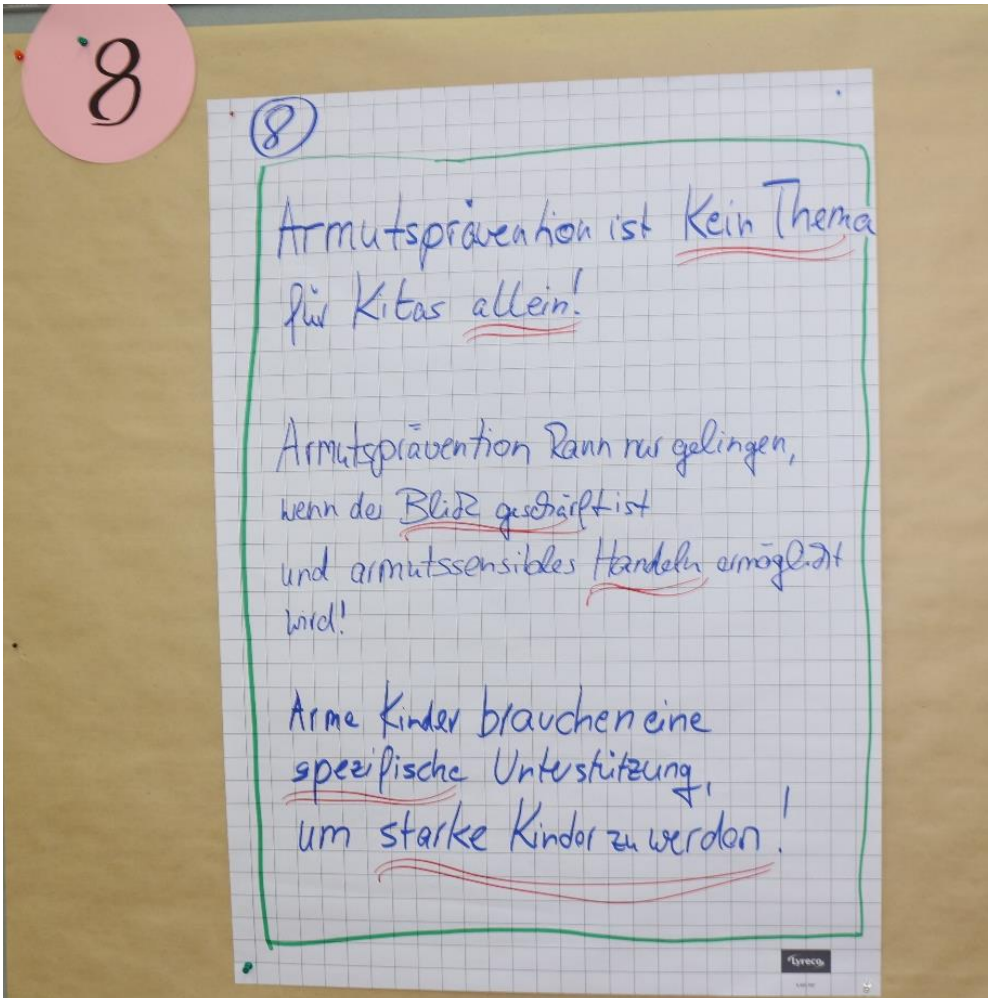 8
8
Armutsprävention ist Kein Thema
für Kitas allein!
Armutsprävention kann nur gelingen,
wenn der Blick geschärft ist
und armutssensibles Handeln ermöglicht
wird!
Arme Kinder brauchen eine
spezifische Unterstützung,
um starke Kinder zu werden!
Lyreco